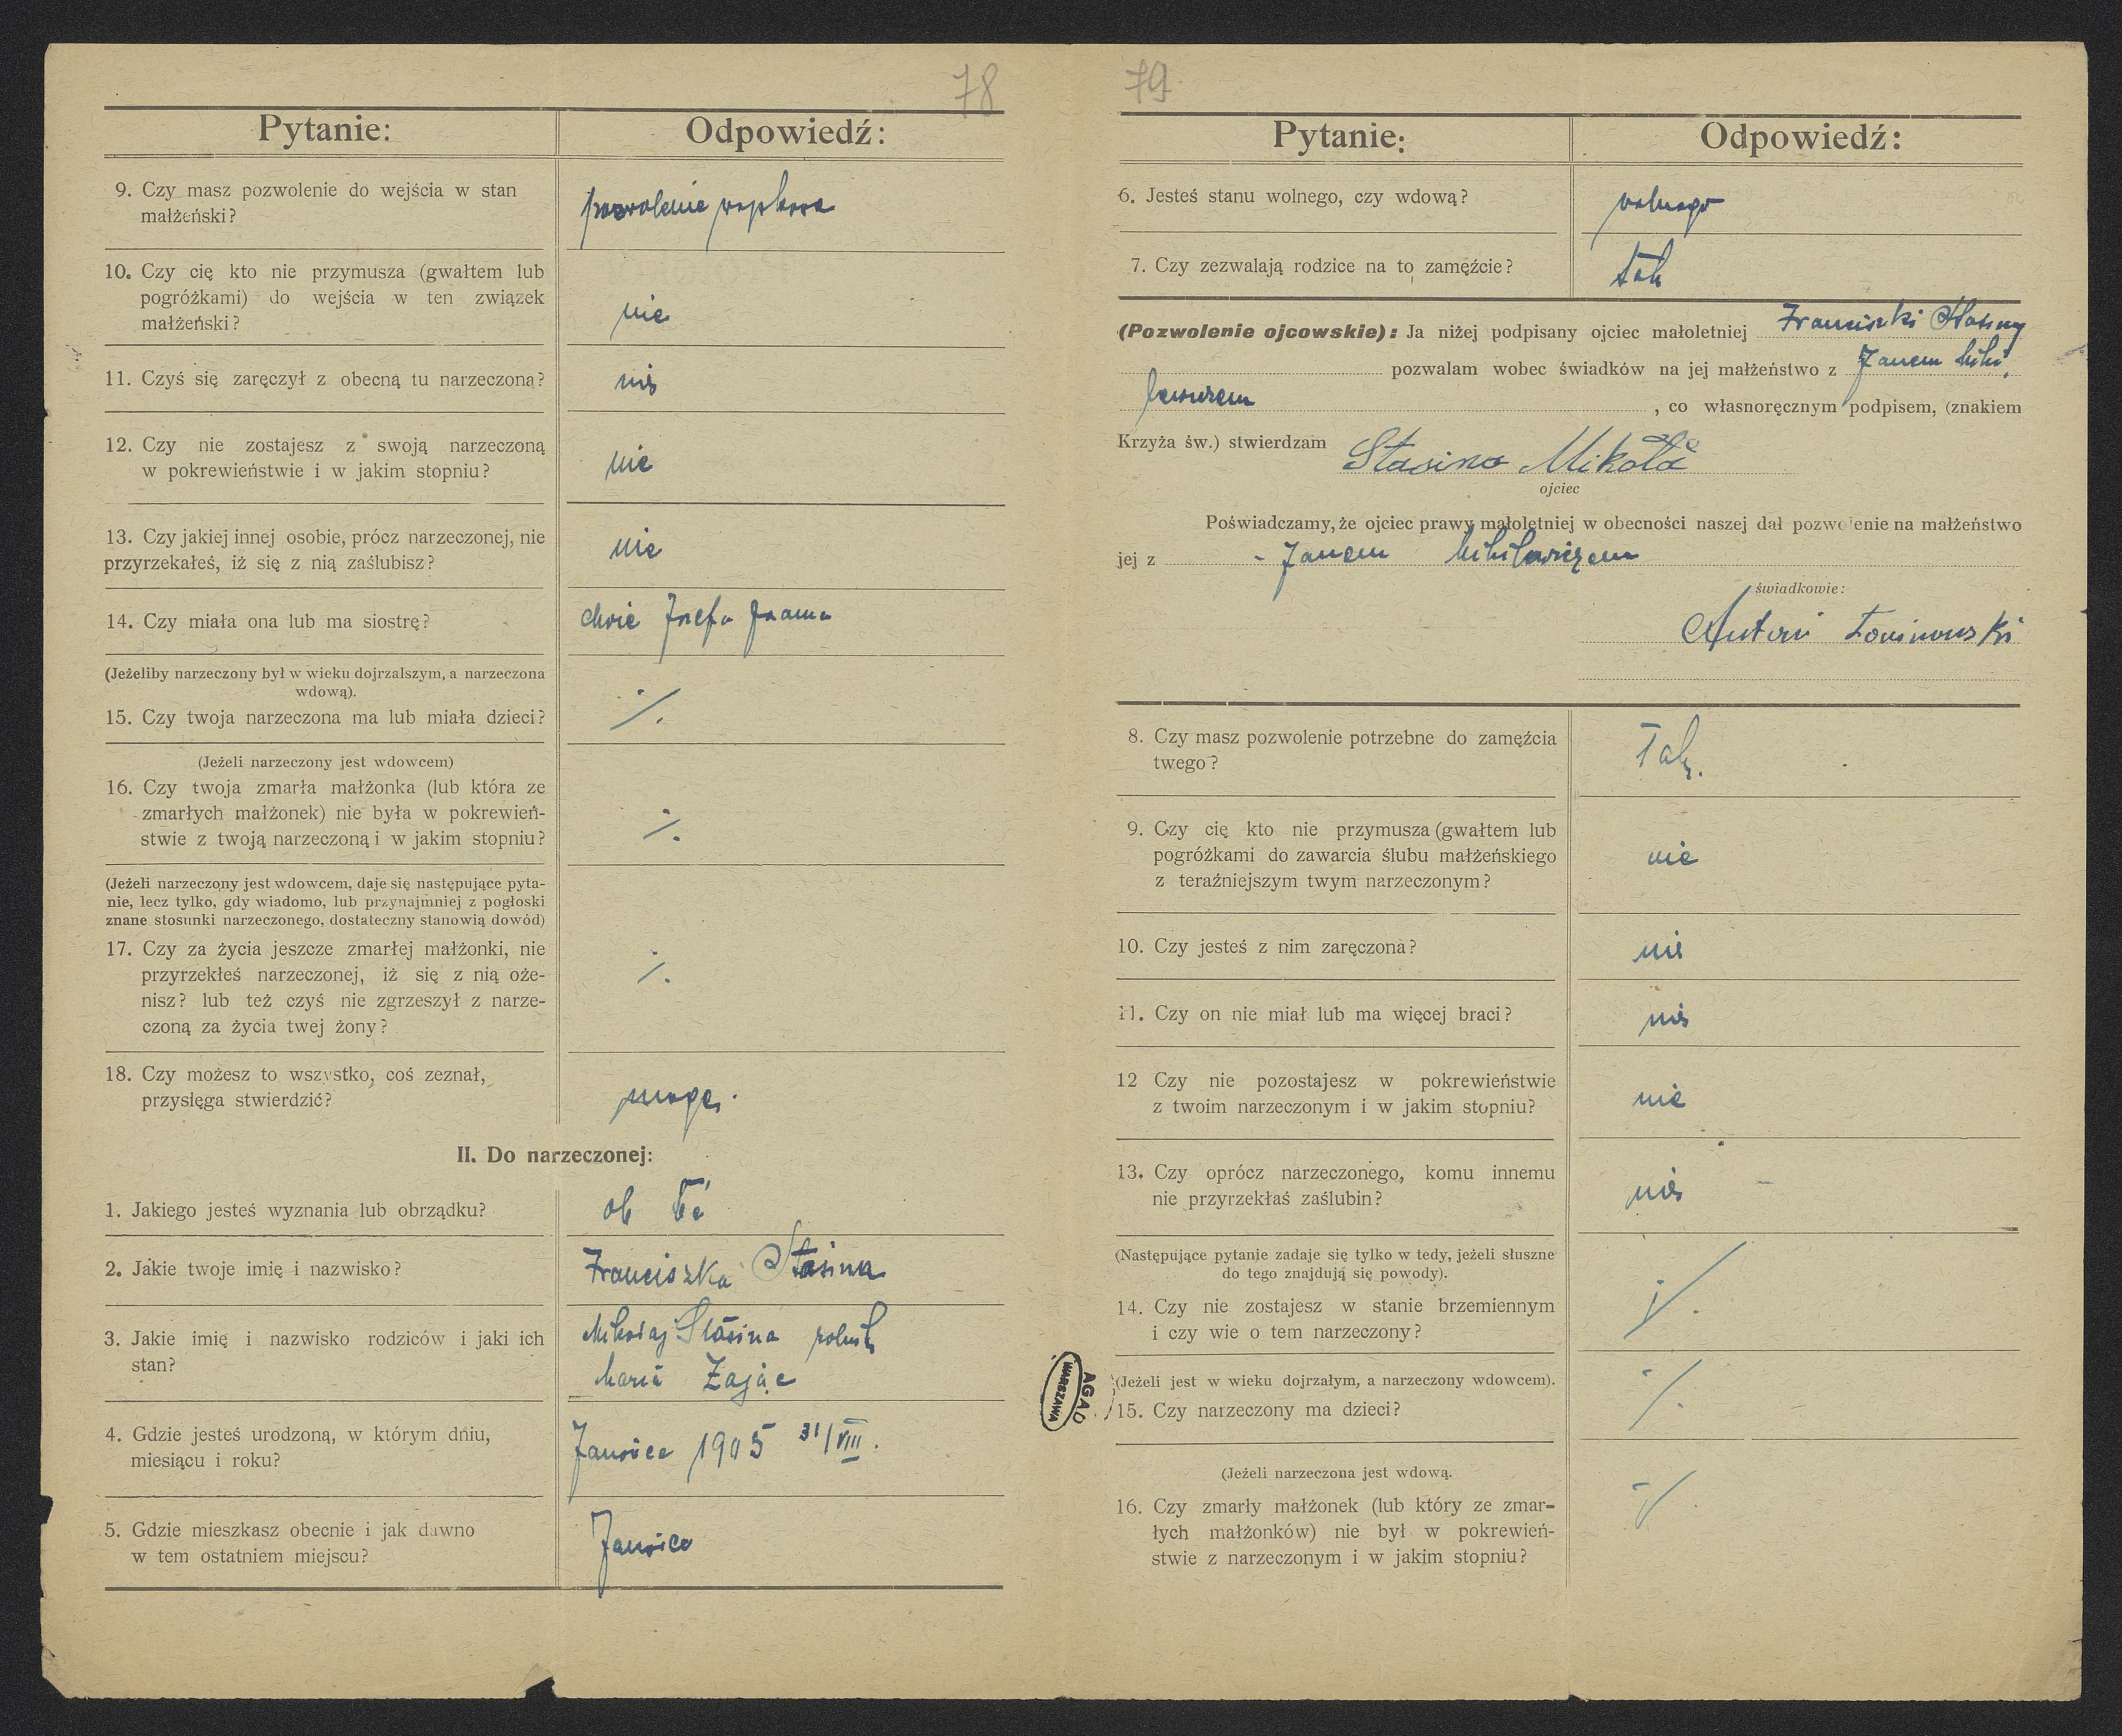 78
Pytanie:
Odpowiedź:
9. Czy masz pozwolenie do wejścia w stan
małżeński?
pozwolenie
10. Czy cię kto nie przymusza (gwałtem lub
pogróżkami) do wejścia w ten związek
małżeński?
nie
11. Czyś się zaręczył z obecną tu narzeczoną?
nie
12. Czy nie zostajesz z swoją narzeczoną
w pokrewieństwie i w jakim stopniu?
nie
13. Czy jakiej innej osobie, prócz narzeczonej, nie
przyrzekałeś, iż się z nią zaślubisz?
nie
14. Czy miała ona lub ma siostrę?
dwie Józefa Joanna
(Jeżeliby narzeczony był w wieku dojrzalszym, a narzeczona
wdową).
15. Czy twoja narzeczona ma lub miała dzieci?
·/.
(Jeżeli narzeczony jest wdowcem)
16. Czy twoja zmarła małżonka (lub która ze
zmarłych małżonek) nie była w pokrewień-
stwie z twoją narzeczoną i w jakim stopniu?
·/.
(Jeżeli narzeczony jest wdowcem, daje się następujące pyta-
nie, lecz tylko, gdy wiadomo, lub przynajmniej z pogłoski
znane stosunki narzeczonego, dostateczny stanowią dowód)
17. Czy za życia jeszcze zmarłej małżonki, nie
przyrzekłeś narzeczonej, iż się z nią oże-
nisz? lub też czyś nie zgrzeszył z narze-
czoną za życia twej żony?
·/.
18. Czy możesz to wszystko, coś zeznał,
przysięga stwierdzić?
mogę.
II. Do narzeczonej:
1. Jakiego jesteś wyznania lub obrządku?
ob łć
2. Jakie twoje imię i nazwisko?
Franciszka Stasina
3. Jakie imię i nazwisko rodziców i jaki ich
stan?
Mikołaj Stasina robotn
Maria Zając
4. Gdzie jesteś urodzoną, w którym dniu,
miesiącu i roku?
Janowice 1905 31/VIII.
5. Gdzie mieszkasz obecnie i jak dawno
w tem ostatniem miejscu?
Janowice
AGAD
WARSZAWA
79
Pytanie:
Odpowiedź:
6. Jesteś stanu wolnego, czy wdową?
wolnego
7. Czy zezwalają rodzice na to zamęźcie?
tak
(Pozwolenie ojcowskie): Ja niżej podpisany ojciec małoletniej Franciszki Stasiny
pozwalam wobec świadków na jej małżeństwo z Janem Miki
lewiczem , co własnoręcznym podpisem, (znakiem
Krzyża św.) stwierdzam Stasina Mikołá
ojciec
Poświadczamy, że ojciec prawy małoletniej w obecności naszej dał pozwolenie na małżeństwo
jej z - Janem Mikilewiczem
świadkowie:
Antoni
8. Czy masz pozwolenie potrzebne do zamęźcia
twego?
Tak.
9. Czy cię kto nie przymusza (gwałtem lub
pogróżkami do zawarcia ślubu małżeńskiego
z teraźniejszym twym narzeczonym?
nie
10. Czy jesteś z nim zaręczona?
nie
11. Czy on nie miał lub ma więcej braci?
nie
12 Czy nie pozostajesz w pokrewieństwie
z twoim narzeczonym i w jakim stopniu?
nie
13. Czy oprócz narzeczonego, komu innemu
nie przyrzekłaś zaślubin?
nie
(Następujące pytanie zadaje się tylko w tedy, jeżeli słuszne
do tego znajdują się powody).
14. Czy nie zostajesz w stanie brzemiennym
i czy wie o tem narzeczony?
·/.
(Jeżeli jest w wieku dojrzałym, a narzeczony wdowcem).
15. Czy narzeczony ma dzieci?
·/.
(Jeżeli narzeczona jest wdową.
16. Czy zmarły małżonek (lub który ze zmar-
łych małżonków) nie był w pokrewień-
stwie z narzeczonym i w jakim stopniu?
·/.